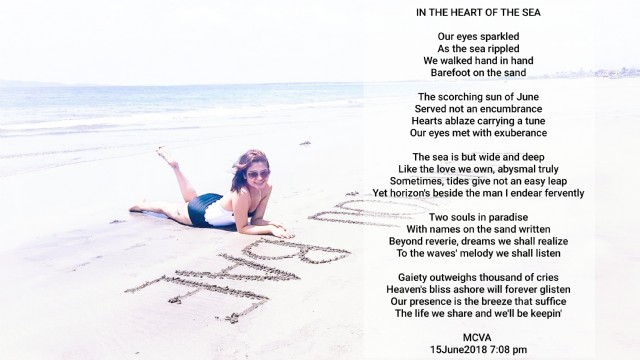 IN THE HEART OF THE SEA
Our eyes sparkled
As the sea rippled
We walked hand in hand
Barefoot on the sand
The scorching sun of June
Served not an encumbrance
Hearts ablaze carrying a tune
Our eyes met with exuberance
The sea is but wide and deep
Like the love we own, abysmal truly
Sometimes, tides give not an easy leap
Yet horizon's beside the man I endear fervently
Two souls in paradise
With names on the sand written
Beyond reverie, dreams we shall realize
To the waves' melody we shall listen
Gaiety outweighs thousand of cries
Heaven's bliss ashore will forever glisten
Our presence is the breeze that suffice
The life we share and we'll be keepin'
MCVA
15June2018 7:08 pm
BAE